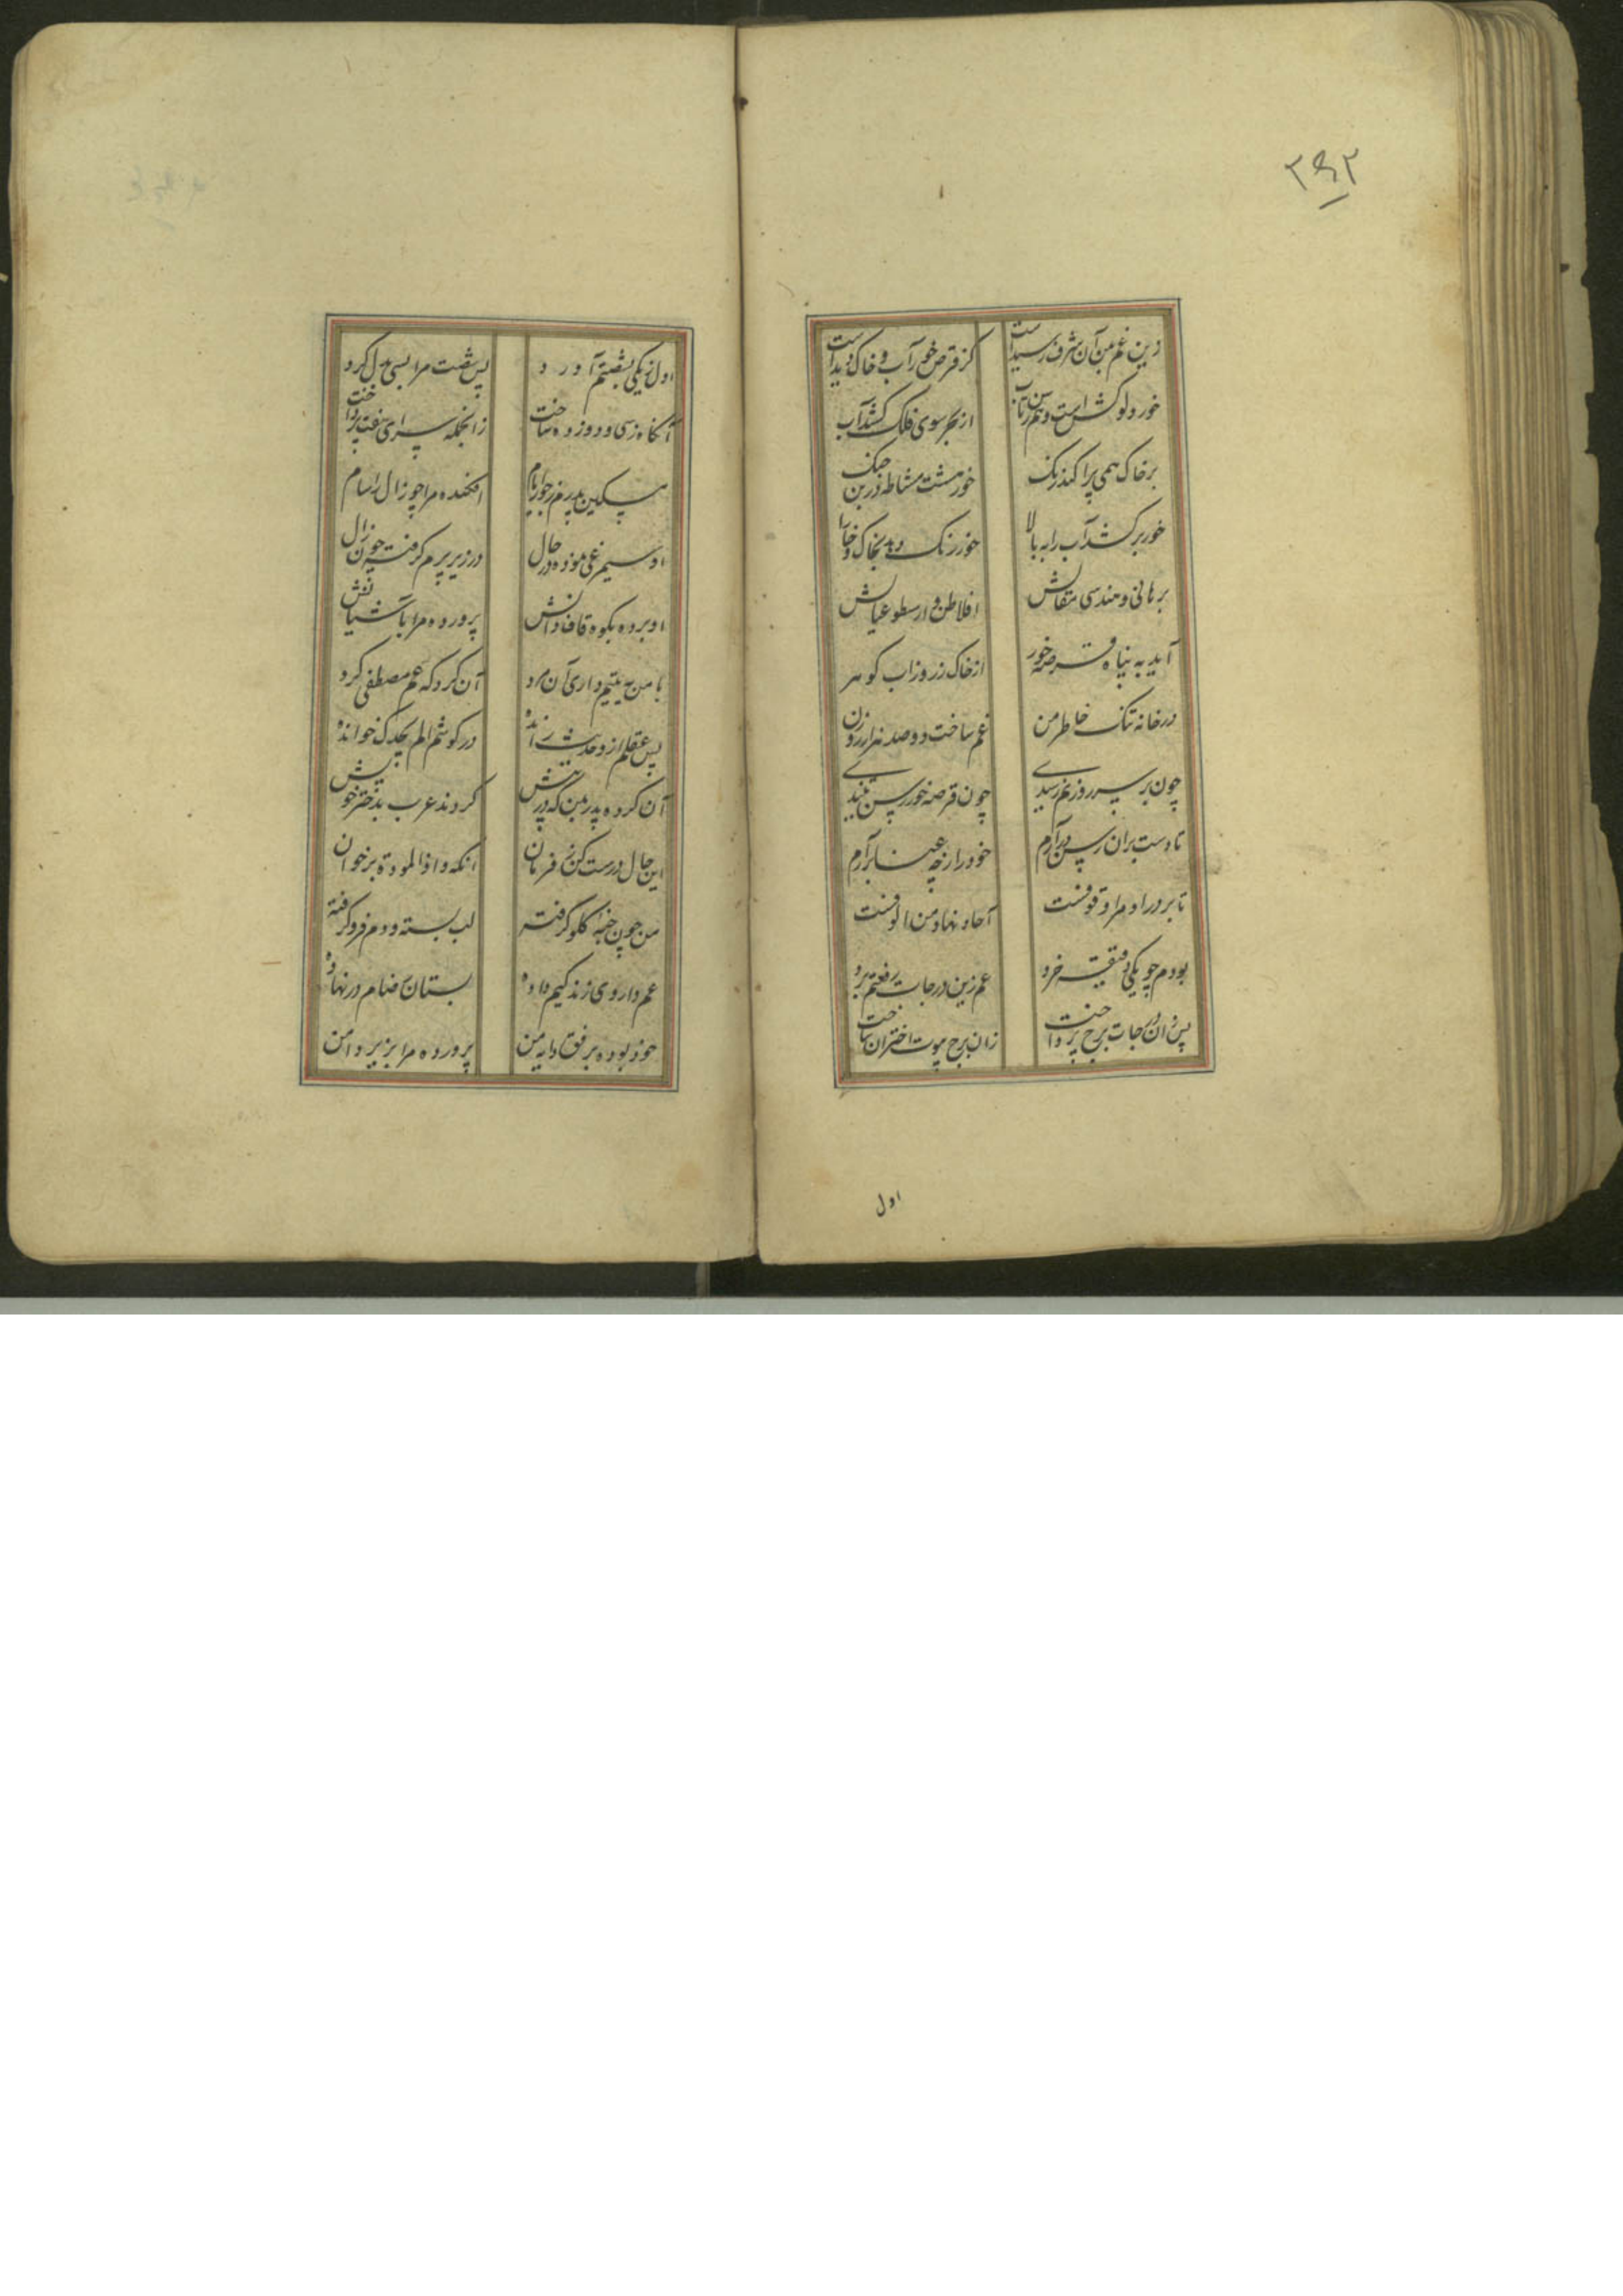 زین عم من آن شرف رسیداست
کز قرص خور آب و خاک دیداست
خور دلو کش است و تن رسن تاب
از بحر سوی فلک کشد آب
بر خاک همی پراکند رنگ
خور هست مشاطه درین جنگ
خور برکشد آب را به بالا
خور رنگ دهد بخاک و خارا
برهانی و هندسی مقالش
افلاطن و ارسطو عیالش
آید به پناه قرصه خور
از خاک زر و ز آب گوهر
در خانه تنگ خاطر من
عم ساخت دو صد هزار روزن
چون بر سر روزنم رسیدی
چون قرصه خور رسن تنیدی
تا دست بر آن رسن درآرم
خود را ز چه عنا برآرم
تا بر در او مرا وقوفست
آحاد نهاد من الوفست
بودم چو یکی دقیقه خرد
عم زین درجات رفعتم برد
پس زان درجات برج پرداخت
زان برج بیوت اختران ساخت
اول
اول ز یکی بشصتم آورد
پس شصت مرا بسی بدل کرد
آنگاه ز سی و دو ز ده ساخت
زانجمله سرای هفت پرداخت
مسکین پدرم ز جور ایام
افکنده مرا چو زال را سام
او سیمرغی نموده در حال
در زیر پرم گرفته چون زال
او برده بکوه قاف دانش
پرورده مرا بآشیانش
با من به یتیم داری آن مرد
آن کرد که عم مصطفی کرد
پس عقلم از وحدیث رانده
در گوشم الم یجدک خوانده
آن کرده پدر بمن که در پیش
کردند عرب بدختر خویش
این حال درست کن ز فرمان
آنکه و اذا الموده برخوان
من چون خبه گلو گرفته
لب بسته و دم فرو گرفته
عم داروی زندگیم داده
بستان رضام در نهاده
خود بوده برفق دایه من
پرورده مرا بزیر دامن